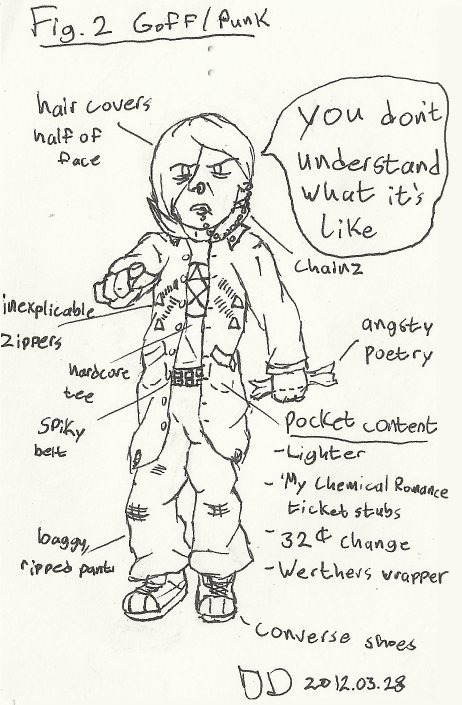 Fig. 2 Goff/Punk
hair covers
half of
face
you don't
understand
what it's
like
chainz
inexplicable
zippers
angsty
poetry
hardcore
tee
spiky
belt
pocket content
- Lighter
- 'My Chemical Romance
ticket stubs
- 32¢ change
- Werthers wrapper
baggy,
ripped pants
converse shoes
DD 2012.03.28